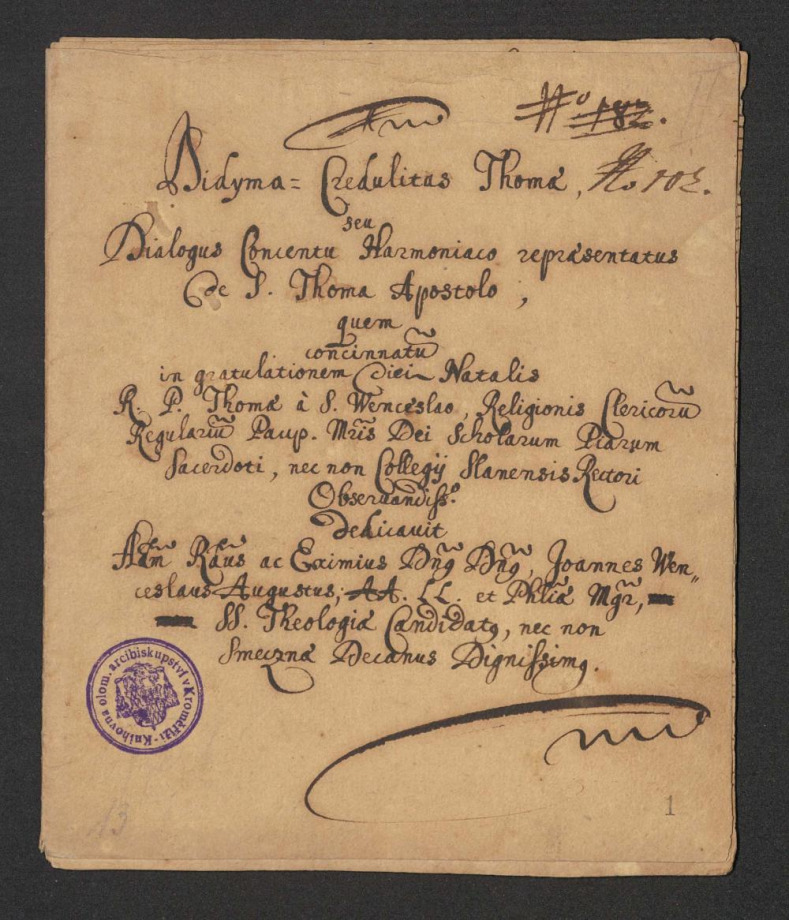 N.º 182.
Didyma = Credulitas Thomæ, No 102.
seu
Dialogus Concentu Harmoniaco repræsentatus
de S. Thoma Apostolo,
quem
concinnatũ
in gratulationem Diei Natalis
R. P. Thomæ à S. Wenceslao, Religionis Clericorũ
Regulariũ Paup. Mr̃is Dei Scholarum Piarum
Sacerdoti, nec non Collegij Slanensis Rectori
Obseruandiss.º
dedicauit
Adm̃ Rd̃us ac Eximius Dñ9 Dñ9, Joannes Wen„
ceslaus Augustus, AA. LL. et Phl̃iæ Mgr̃,
SS. Theologiæ Candidat9, nec non
Smecznæ Decanus Dignissim9.
Knihovna olom. arcibiskupství v Kroměříži
13
1